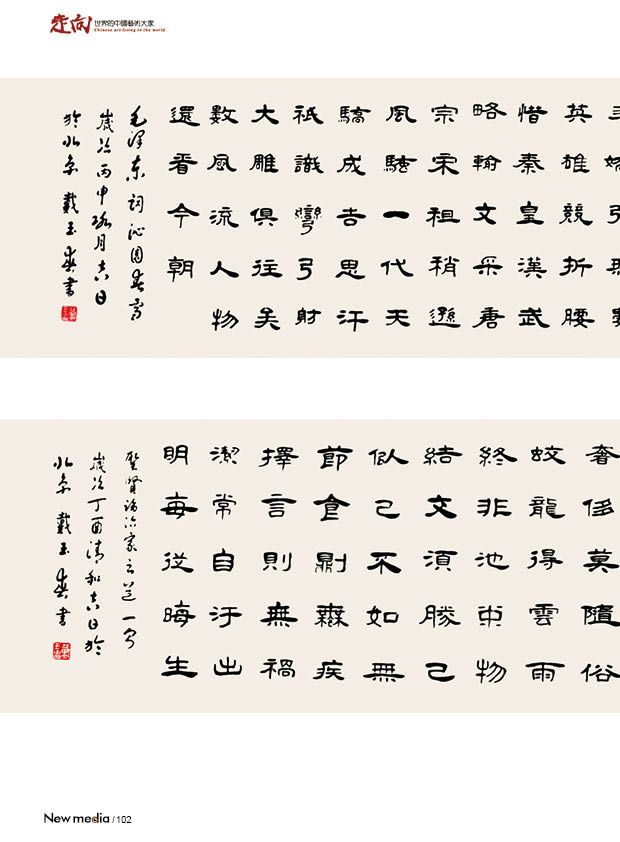 走向世界的中國藝術大家
Chinese art Going to the world
英雄競折腰
惜秦皇漢武
略輸文采唐
宗宋祖稍遜
風騷一代天
驕成吉思汗
祇識彎弓射
大雕俱往矣
數風流人物
還看今朝
毛澤東詞沁園春雪
歲次丙申玖月吉日
於北京戴玉書
奢侈莫隨俗
蛟龍得雲雨
終非池中物
結交須勝己
似己不如無
節食則無疾
擇言則無禍
潔常自汙出
明每從晦生
聖賢論治家之道一
歲次丁酉清和吉日於
北京戴玉書
New media / 102